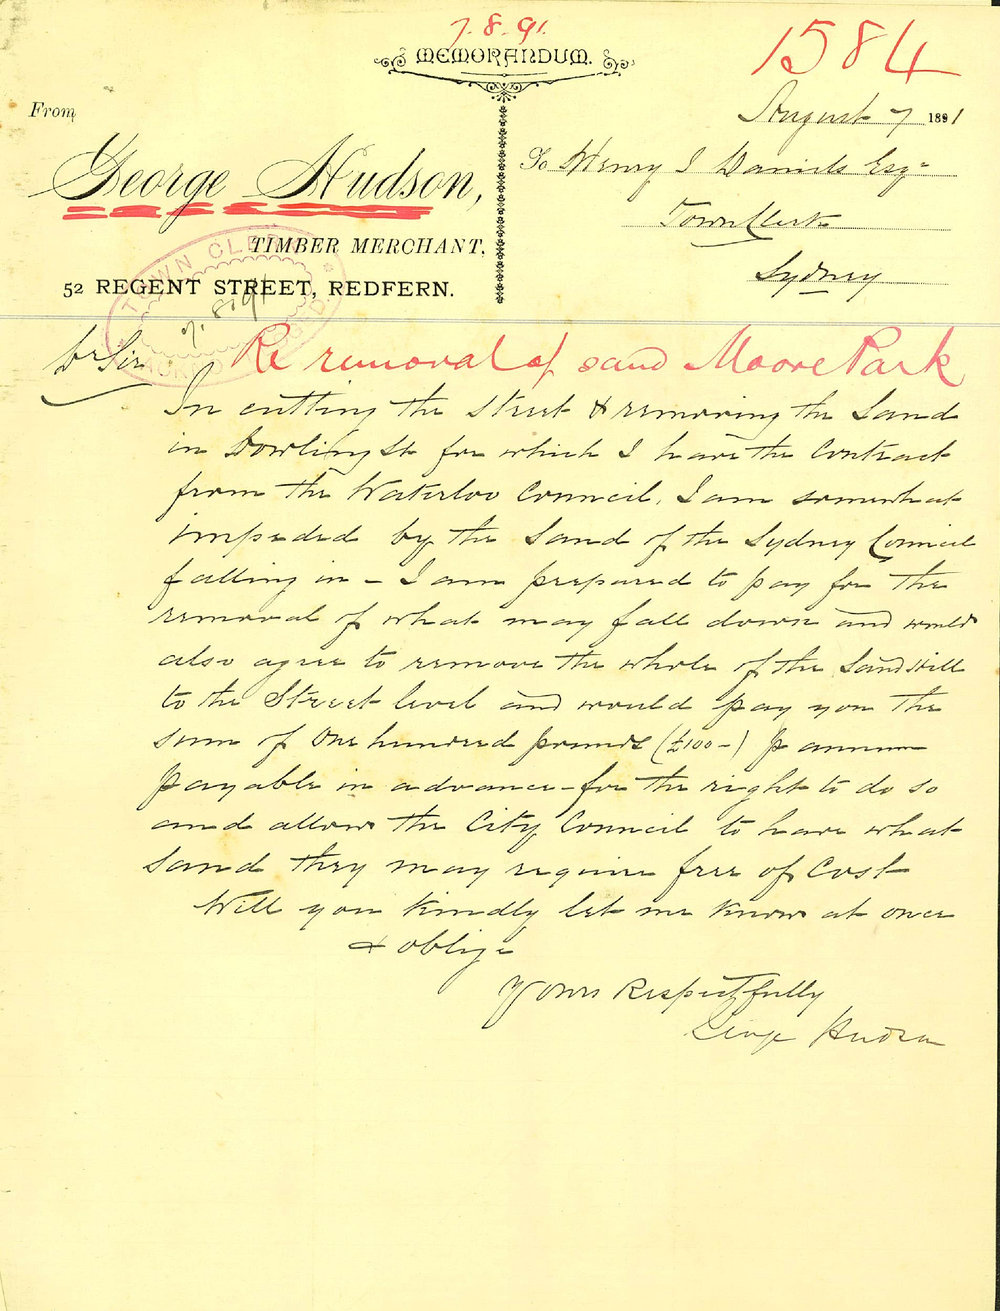 7.8.91.
MEMORANDUM.
1584
From
August 7 1891
George Hudson,
To Henry J Daniels Esqr
Town Clerk
TIMBER MERCHANT.
Sydney
52 REGENT STREET, REDFERN.
TOWN CLERK
7.8.91
Dr Sir
Re removal of sand Moore Park
In cutting the Street & removing the Sand
in Dowling St for which I have the Contract
from the Waterloo Council, I am somewhat
impeded by the Sand of the Sydney Council
falling in - I am prepared to pay for the
removal of what may fall down and would
also agree to remove the whole of the Sandhill
to the Street level and would pay you the
sum of One hundred pounds (£100-) p annum
payable in advance - for the right to do so
and allow the City Council to have what
sand they may require free of Cost
Will you kindly let me know at once
& oblige
Yours Respectfully
George Hudson